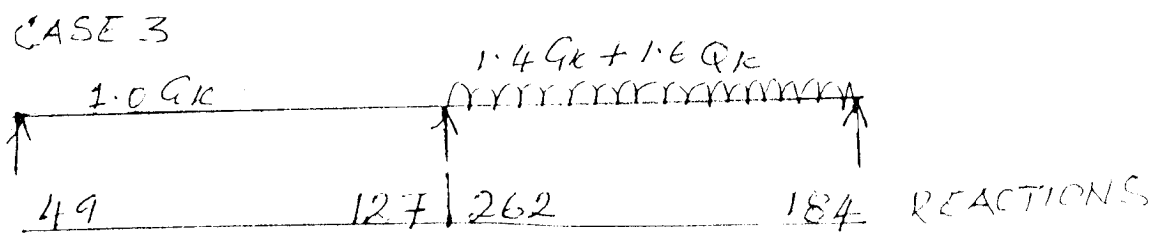 CASE 3
1.4 Gk + 1.6 Qk
1.0 Gk
49 127 262 184 REACTIONS